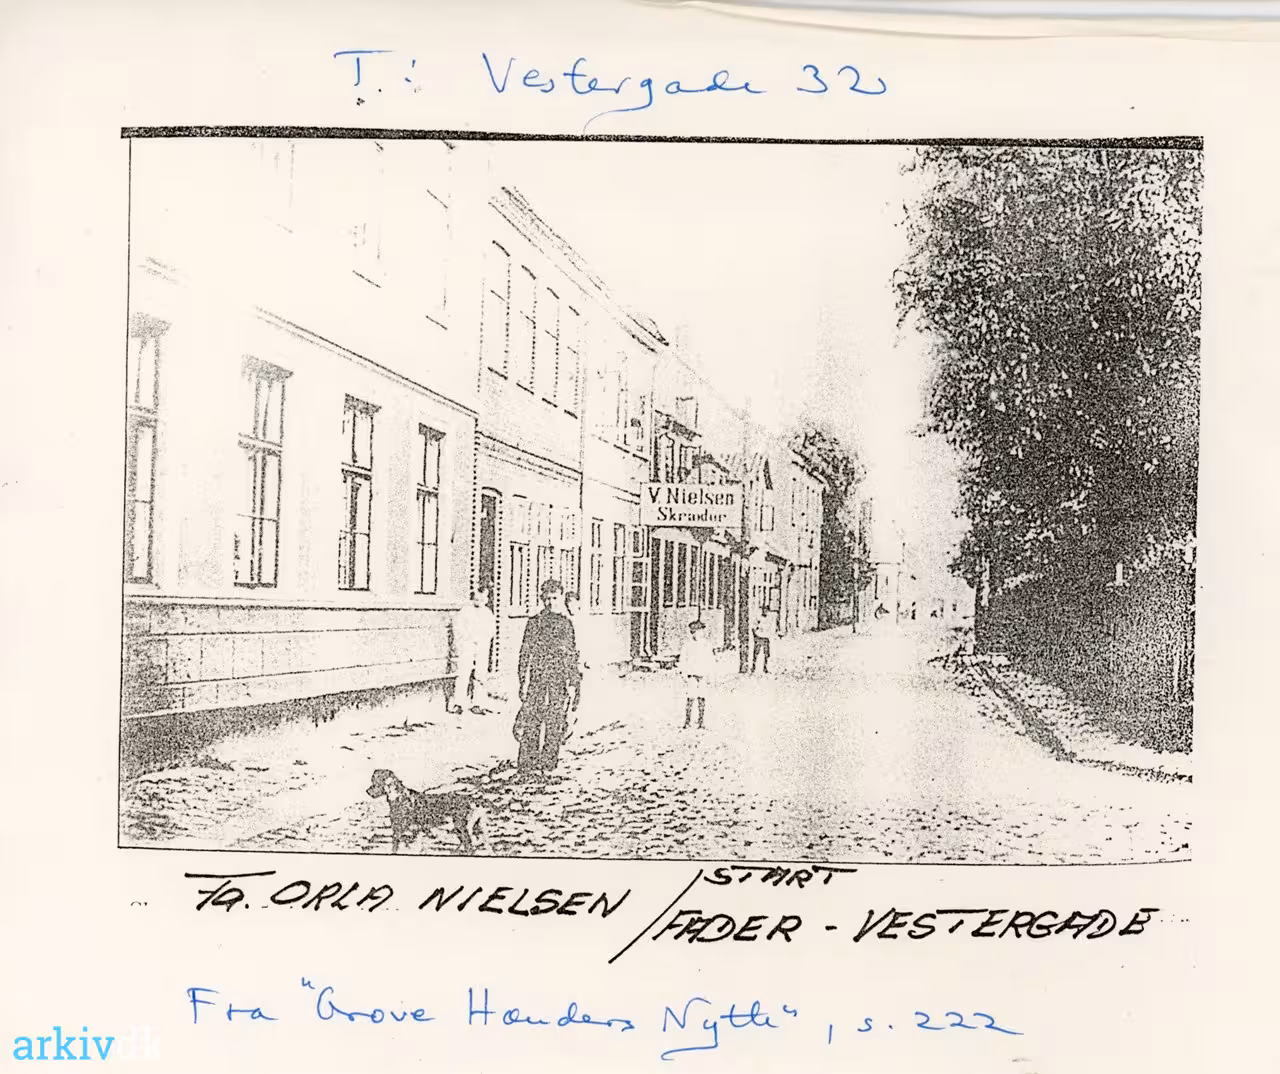 T.: Vestergade 32
V. Nielsen
Skræder
Fa. ORLA NIELSEN / START
FADER - VESTERGADE
Fra "Grove Hænders Nytte", s. 222
arkivdk